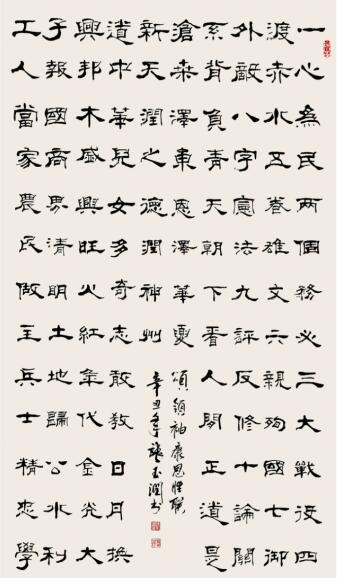 一心為民兩個務必三大戰役四
渡赤水五卷雄文六親殉國七御
外敵八字憲法九評反修十論關
系背負青天朝下看人間正道是
滄桑澤東恩澤華夏
工人當家農民做主兵士精忠學
子報國商界清明土地歸公水利
興邦木盛興旺火紅年代金光大
道中華兒女多奇志敢教日月換
新天潤之德潤神州
頌領袖
辛丑年張玉潤書